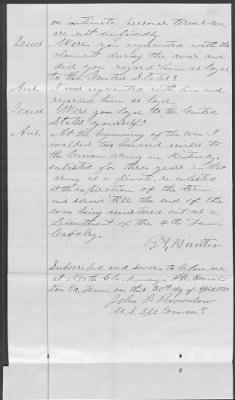 on intimate personal terms - we
are not unfriendly.
Quest Were you acquainted with the
claimant during the war and
did you regard him as loyal
to the United States?
Ans. I was acquainted with him and
regarded him as loyal.
Quest Were you loyal to the United
States yourself?
Ans. At the beginning of the war I
walked two hundred miles to
the Union army in Kentucky,
enlisted for three years in that
army as a private, re enlisted
at the expiration of the term
and served till the end of the
war being mustered out as a
Lieutenant of the 4th Tenn
Cavalry.
Hunter
Subscribed and sworn to before me
at North Chickamauga P.O. Hamil-
ton Co, Tenn, on this 30th day of April
John B Brownlow
U.S. Spl Comm'r